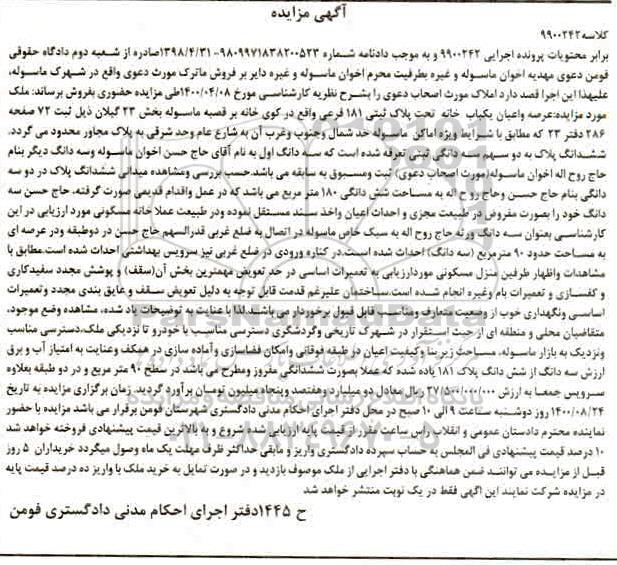 آگهی مزایده
کلاسه ۹۹۰۰۲۴۲
برابر محتویات پرونده اجرایی ۹۹۰۰۲۴۲ و به موجب دادنامه شماره ۹۸۰۹۹۷۱۸۳۸۲۰۰۵۲۳-۱۳۹۸/۴/۳۱صادره از شعبه دوم دادگاه حقوقی
فومن دعوی مهدیه اخوان ماسوله و غیره بطرفیت محرم اخوان ماسوله و غیره دایر بر فروش ماترک مورث دعوی واقع در شهرک ماسوله،
علیهذا این اجرا قصد دارد املاک مورث اصحاب دعوی را بشرح نظریه کارشناسی مورخ ۱۴۰۰/۰۴/۰۸طی مزایده حضوری بفروش برساند: ملک
مورد مزایده:عرصه واعیان یکباب خانه تحت پلاک ثبتی ۱۸۱ فرعی واقع در کوی خانه بر قصبه ماسوله بخش ۲۳ گیلان ذیل ثبت ۷۲ صفحه
۲۸۶ دفتر ۲۳ که مطابق با شرایط ویژه اماکن ماسوله حد شمال وجنوب وغرب آن به شارع عام وحد شرقی به پلاک مجاور محدود می گردد.
ششدانگ پلاک به دو سهم سه دانگی ثبتی تعرفه شده است که سه دانگ اول به نام آقای حاج حسن اخوان ماسوله وسه دانگ دیگر بنام
حاج روح اله اخوان ماسوله(مورث اصحاب دعوی) ثبت ومسبوق به سابقه می باشد.حسب بررسی ومشاهده میدانی ششدانگ پلاک در دو سه
دانگی بنام حاج حسن وحاج روح اله به مساحت شش دانگی ۱۸۰ متر مربع می باشد که در عمل واقدام قدیمی صورت گرفته، حاج حسن سه
دانگ خود را بصورت مفروض در طبیعت مجزی و احداث اعیان واخذ سند مستقل نموده ودر طبیعت عملا خانه مسکونی مورد ارزیابی در این
کارشناسی بعنوان سه دانگ ورثه حاج روح اله به سبک خاص ماسوله در اتصال به ضلع غربی قدرالسهم حاج حسن در دوطبقه ودر عرصه ای
به مساحت حدود ۹۰ مترمربع (سه دانگ) احداث شده است.در کناره ورودی در ضلع غربی نیز سرویس بهداشتی احداث شده است.مطابق با
مشاهدات واظهار طرفین منزل مسکونی موردارزیابی به تعمیرات اساسی در حد تعویض مهمترین بخش آن(سقف) و پوشش مجدد سفیدکاری
و کفسازی و تعمیرات بام وغیره انجام شده است.ساختمان علیرغم قدمت قابل توجه به دلیل تعویض سقف و عایق بندی مجدد وتعمیرات
اساسی ونگهداری خوب از وضعیت متعارف ومناسب قابل قبول برخوردار می باشد.لذا با عنایت به توضیحات یاد شده، مشاهده وضع موجود،
متقاضیان محلی و منطقه ای از حیث استقرار در شهرک تاریخی وگردشگری دسترسی مناسب با خودرو تا نزدیکی ملک،دسترسی مناسب
ونزدیک به بازار ماسوله، مساحت زیربنا وکیفیت اعیان در طبقه فوقانی وامکان فضاسازی وآماده سازی در همکف وعنایت به امتیاز آب و برق
ارزش سه دانگ از شش دانگ پلاک ۱۸۱ یاده شده که عملا بصورت ششدانگی مفروز ومطرح می باشد در سطح ۹۰ متر مربع و در دو طبقه بعلاوه
سرویس جمعا به ارزش ۲۷/۵۰۰/۰۰۰/۰۰۰ ریال معادل دو میلیارد وهفتصد وپنجاه میلیون تومان برآورد گردید. زمان برگزاری مزایده به تاریخ
۱۴۰۰/۰۸/۲۴ روز دوشنبه ساعت ۹ الی ۱۰ صبح در محل دفتر اجرای احکام مدنی دادگستری شهرستان فومن برقرار می باشد مزایده با حضور
نماینده محترم دادستان عمومی و انقلاب راس ساعت مقرر از قیمت پایه ارزیابی شده شروع و به بالاترین قیمت پیشنهادی فروخته خواهد شد
۱۰ درصد قیمت پیشنهادی فی المجلس به حساب سپرده دادگستری واریز و مابقی حداکثر ظرف مهلت یک ماه وصول میگردد خریداران ۵ روز
قبل از مزایده می توانند ضمن هماهنگی با دفتر اجرایی از ملک موصوف بازدید و در صورت تمایل به خرید ملک با واریز ده درصد قیمت پایه
در مزایده شرکت نمایند این اگهی فقط در یک نوبت منتشر خواهد شد
ح ۱۴۴۵دفتر اجرای احکام مدنی دادگستری فومن